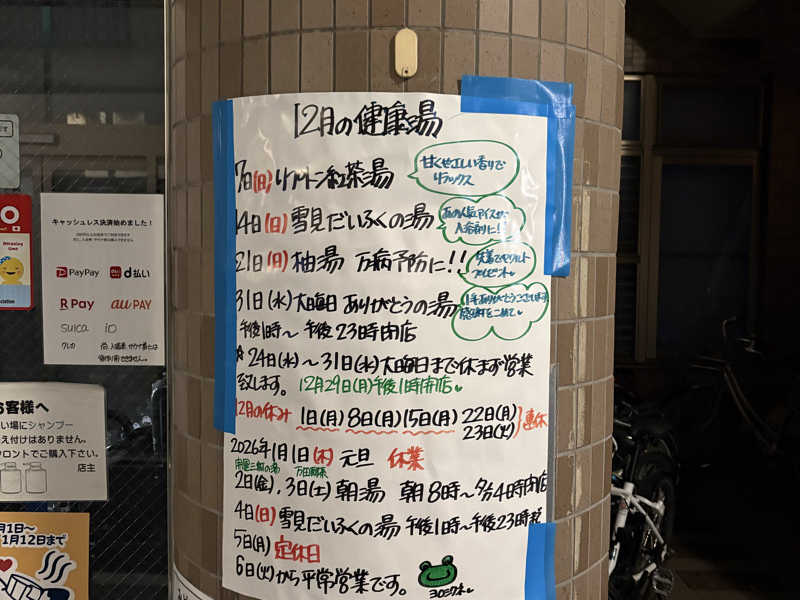 12月の健康湯
7日(日)リプトン紅茶湯
甘くせつ正しい香りで
リラックス
14日(日)雪見だいふくの湯
あの人気アイスが
入浴剤に!!
21日(日)柚湯 万病予防に!!
先着でヤクルト
プレゼント
31日(水)大晦日 ありがとうの湯
1年ありがとうございます
感謝をこめて
午後1時〜午後23時閉店
☆24日(水)〜31日(水)大晦日まで休まず営業
致します。12月29日(月)午後1時開店
12月の休み 1日(月)8日(月)15日(月)22日(月)
23日(火)
連休
2026年1月1日(木)元旦 休業
2日(金).3日(土)朝湯 朝8時〜夕4時閉店
4日(日)雪見だいふくの湯 午後1時〜午後23時迄
5日(月)定休日
6日(火)から平常営業です。
ヨロシクネ
キャッシュレス決済始めました!
PayPay
d払い
R Pay
au PAY
Suica iD
お客様へ
い場にシャンプー
え付けはありません。
フロントでご購入下さい。
店主
月1日〜
1月12日まで